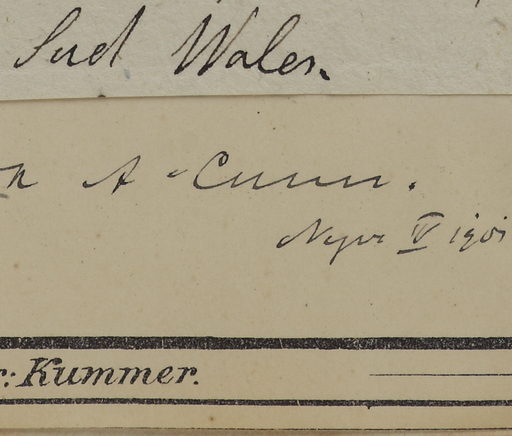 Sud Wales.
A Cunn.
V 1901
r: Kummer.